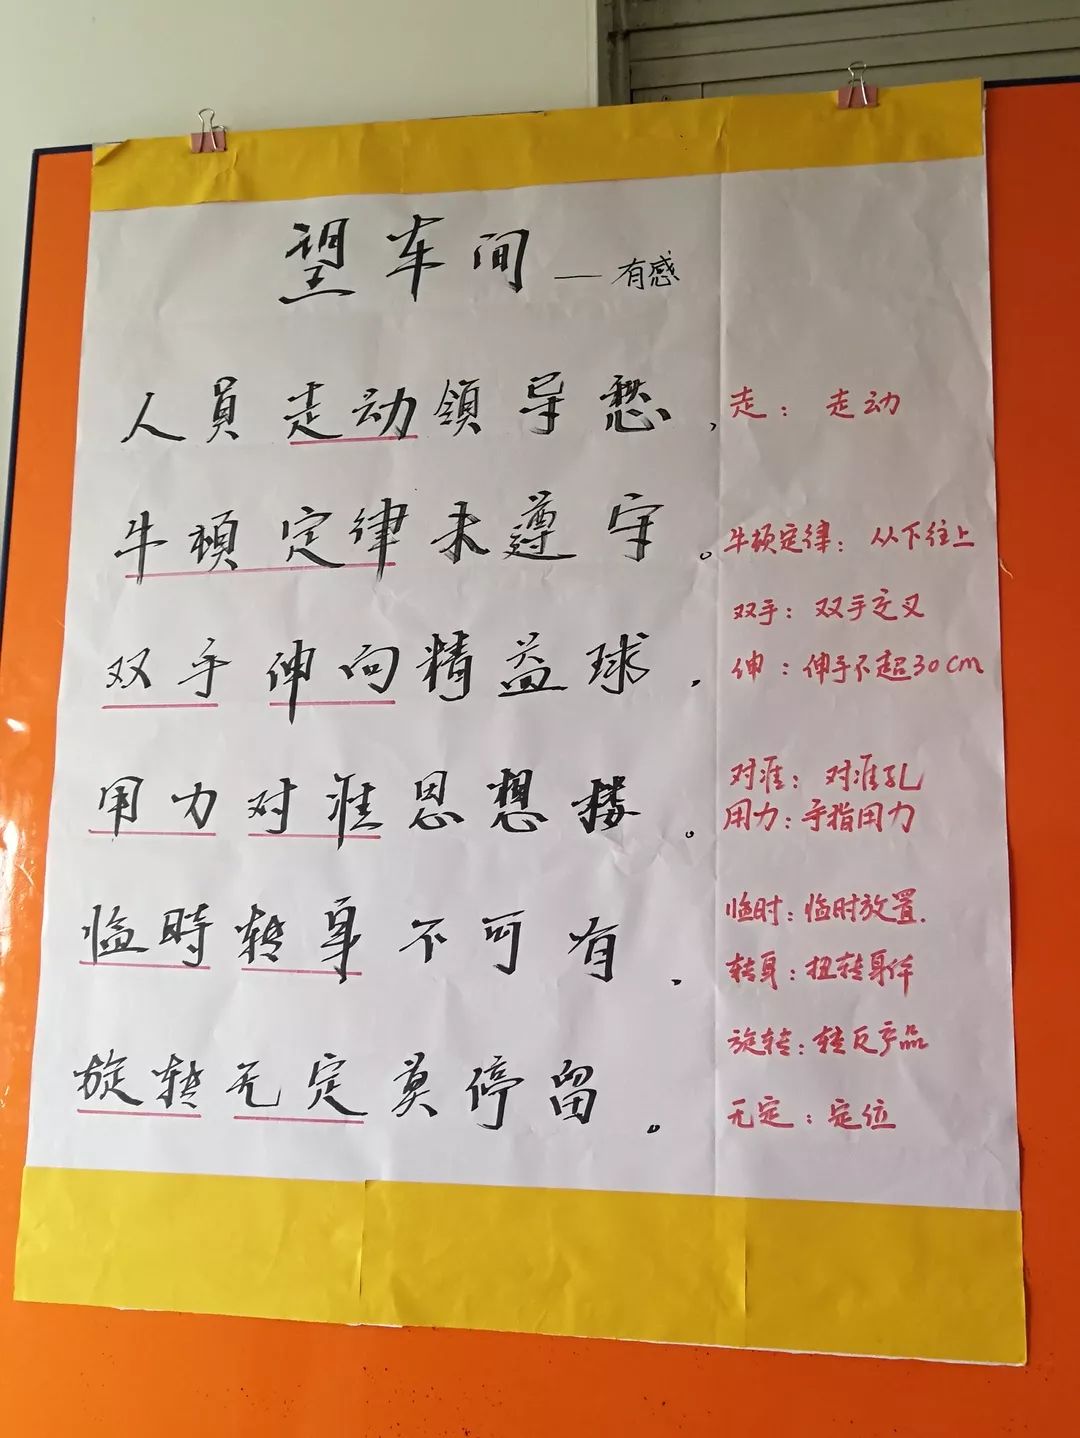 望车间——有感
人員走动領导愁，
牛頓定律未遵守。
双手伸向精益球，
用力对准思想楼。
临時转身不可有，
旋转无定莫停留。
走：走动
牛顿定律：从下往上
双手：双手交叉
伸：伸手不超30cm
对准：对准孔
用力：手指用力
临时：临时放置.
转身：扭转身体
旋转：转反产品
无定：定位